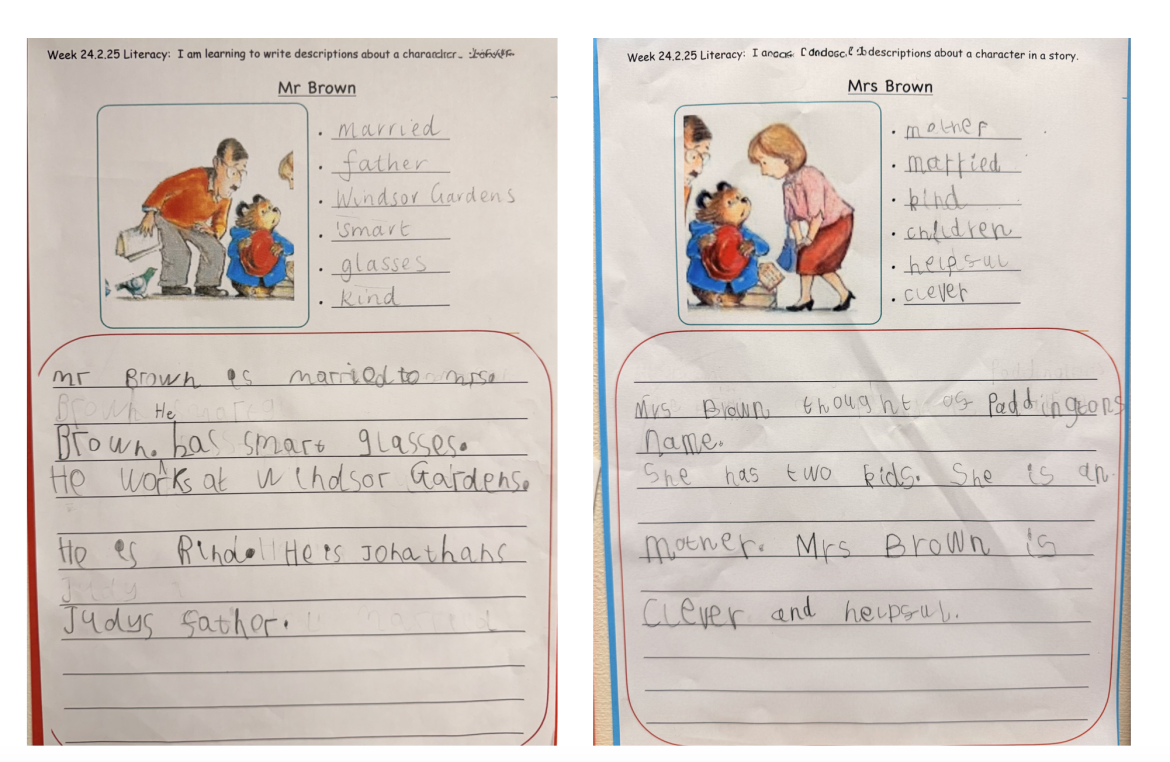 Week 24.2.25 Literacy: I am learning to write descriptions about a
Mr Brown
• married
• father
• Windsor Gardens
• smart
• glasses
• kind
mr Brown is married to mrs.
Brown. He has smart glasses.
He works at Windsor Gardens.
He is kind. He is Jonathans
Judys father.
Week 24.2.25 Literacy: I descriptions about a character in a story.
Mrs Brown
• mother
• married
• kind
• children
• helpful
• clever
Mrs Brown thought of Paddingtons
name.
She has two kids. She is an.
mother. Mrs Brown is
clever and helpful.